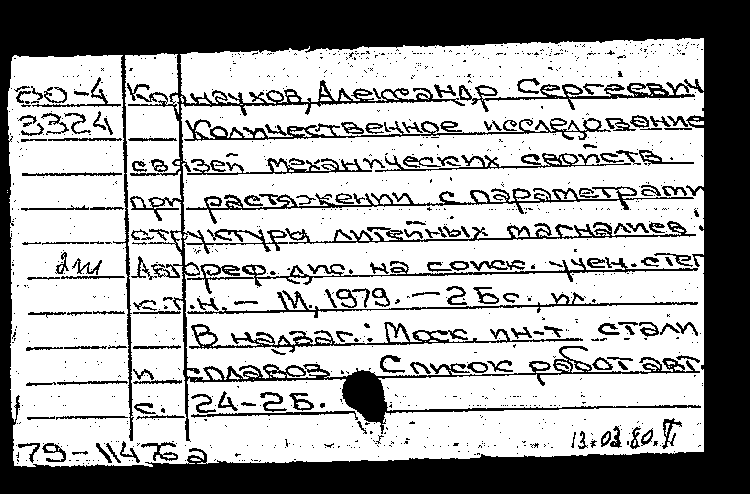 80-4 Корнаухов, Александр Сергеевич
3324 Количественное исследование
связей механических свойств
при растяжении с параметрами
структуры литейных магналиев:
2ш Автореф. дис. на соиск. учен. степ
к.т.н. - М., 1979. - 25с., ил.
В надзаг.: Моск. ин-т стали
и сплавов. Список работ авт.
с. 24-25.
79-11476а 13.03.80.